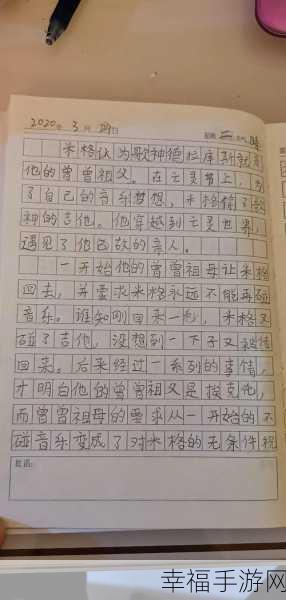 2020年 3月 日 星期 二 天气 晴
米格认为歌神德拉库斯就是
他的曾曾祖父。在亡灵节上，为
了自己的音乐梦想，米格借了歌
神的吉他。他穿越到亡灵世界，
遇见了他已故的亲人。
一开始他的曾曾祖母让米格
回去，并要求米格永远不能再碰
音乐。谁知刚回来一他，米格又
碰了吉他，没想到一下子又被传
回来。后来经过一系列的事情，
才明白他的曾曾祖父是埃克托，
而曾曾祖母的要求从一开始的不
碰音乐变成了对米格的无条件祝
批语：
幸福手游网